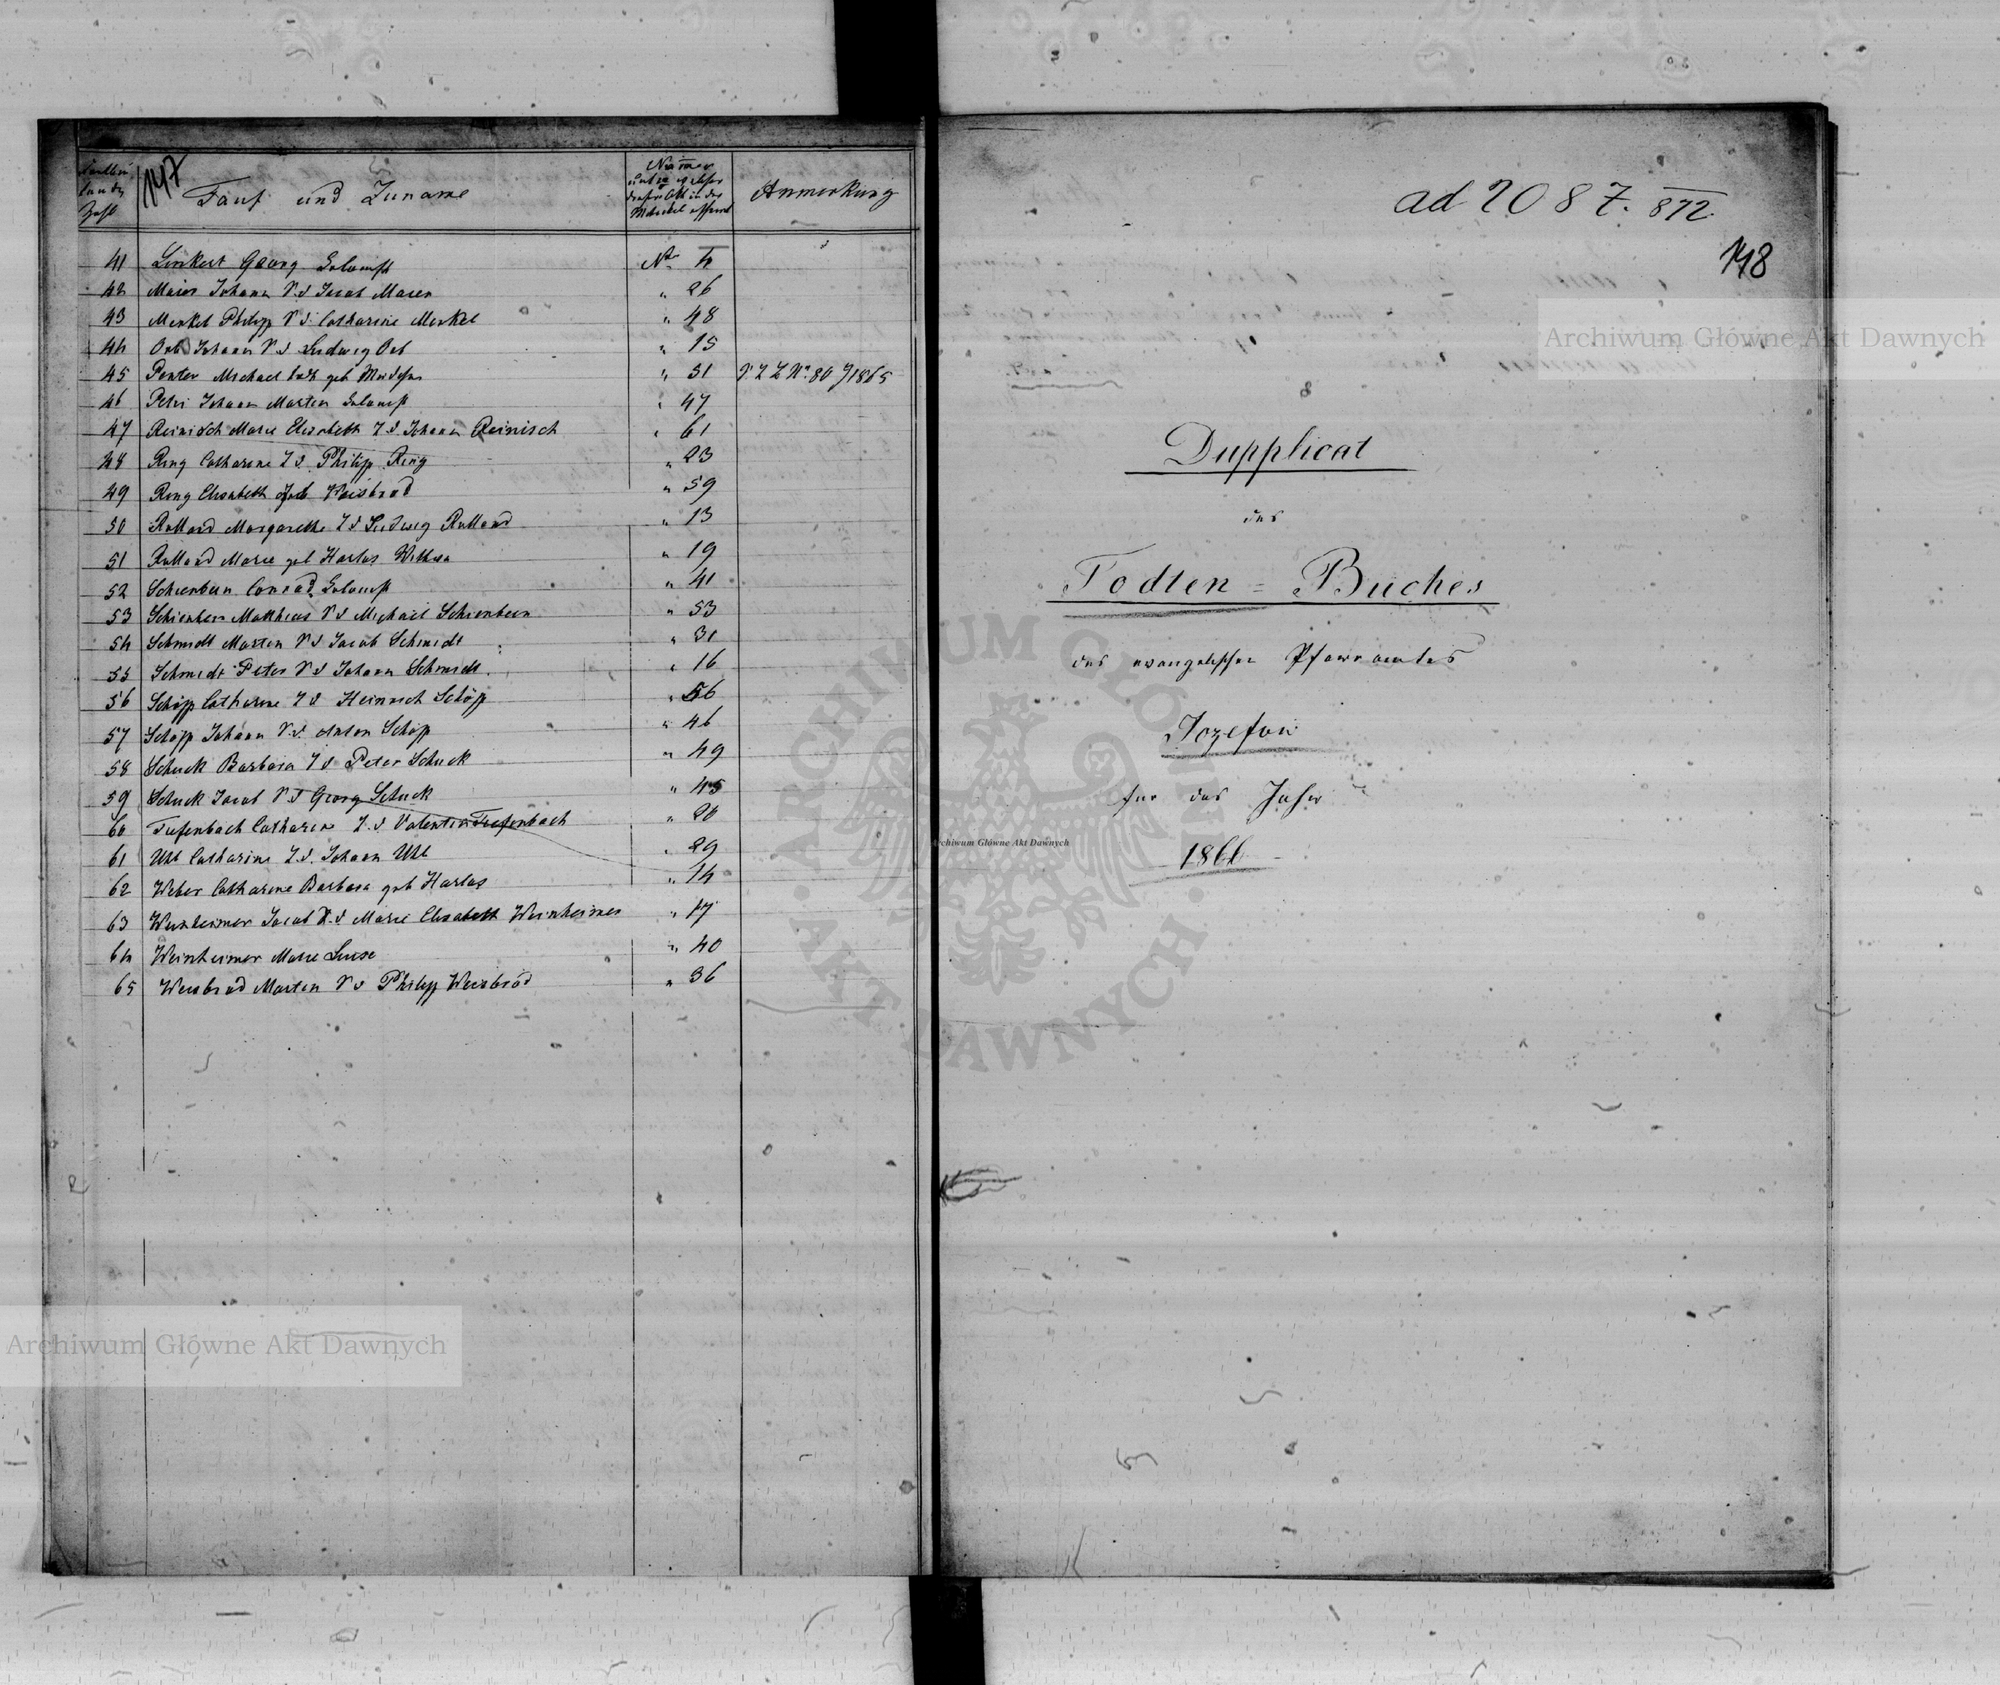 147
Fortlau-
fende
Zahl
Tauf und Zuname
Numer
unter welcher
dieser Akt in der
Matrikel
Anmerkung
41 Linkert Georg No 4
42 Maier Johann S. d Jacob " 26
43 Merkel Philipp S d. Catharine Merkel " 48
44 Orb Johann S d Ludwig Orb " 15
45 Michael geb " 51 No 80 1865
46 Petri Johann Martin " 47
47 Reinisch Marie Elisabeth T d Johann Reinisch " 61
48 Ring Catharine T d Philipp Ring " 23
49 Ring Elisabeth geb Weisbrod " 59
50 Rulland Margarethe T d Ludwig Rulland " 13
51 Rulland Marie geb Harlos Wittwe " 19
52 Schienbein Conrad " 41
53 Schienbein Matthias S d Michael Schienbein " 53
54 Schmidt Martin S d Jacob Schmidt " 31
55 Schmidt Peter S d Johann Schmidt " 16
56 Schöpp Catharine T d Heinrich Schöpp " 56
57 Schöpp Johann S. d. Anton Schöpp " 46
58 Schuck Barbara T d Peter Schuck " 49
59 Schuck Jacob S d Georg Schuck " 45
60 Tiefenbach Catharin T. d Valentin Tiefenbach " 20
61 Uhl Catharine T. d. Johann Uhl " 29
62 Weber Catharine Barbara geb Harlos " 14
63 Weinheimer Jacob S. d Marie Elisabeth Weinheimer " 17
64 Weinheimer Marie Luise " 40
65 Weisbrod Martin S d Philipp Weisbrod " 36
ad 2087. 872
148
Dupplicat
des
Todten = Buches
des evangelischen Pfarramtes
Jozefow
für das Jahr
1866
Archiwum Główne Akt Dawnych
Archiwum Główne Akt Dawnych
Archiwum Główne Akt Dawnych
ARCHIWUM GŁÓWNE · AKT DAWNYCH ·